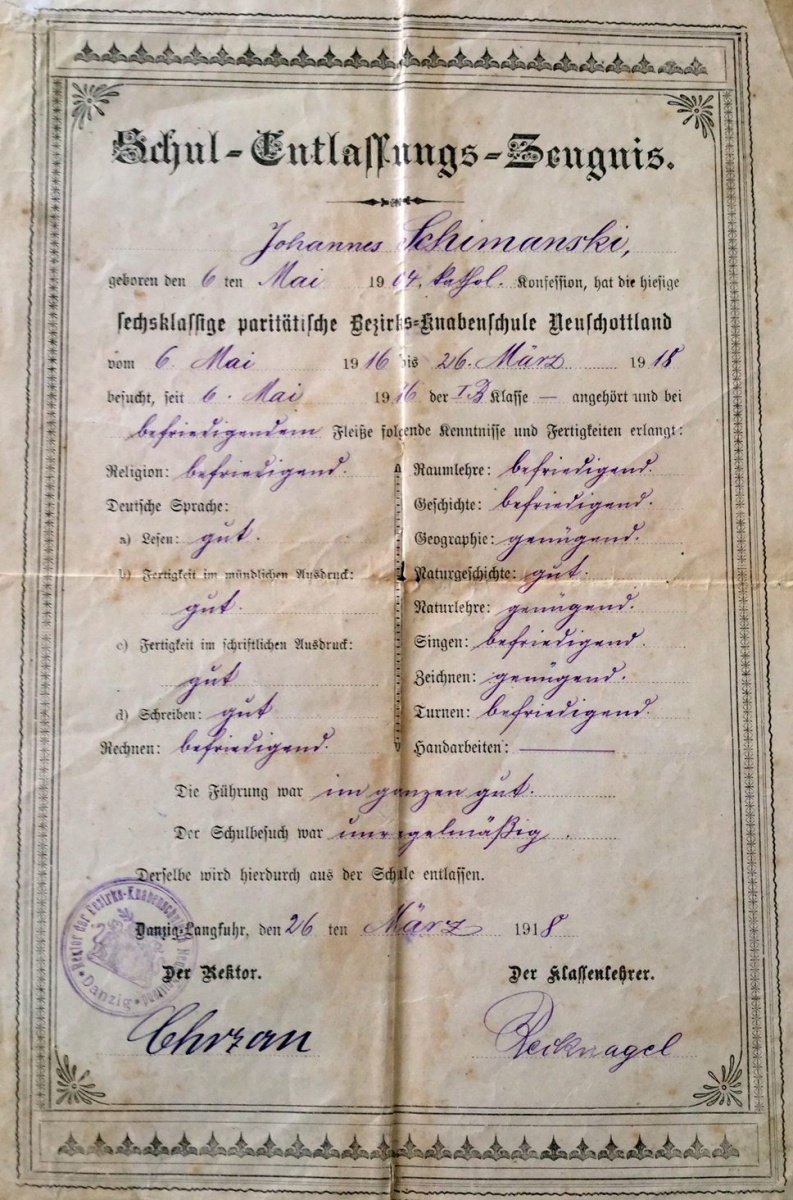 Schul-Entlassungs-Zeugnis.
Johannes Schimanski,
geboren den 6 ten Mai 1904, kathol. Konfession, hat die hiesige
sechsklassige paritätische Bezirks-Knabenschule Neuschottland
vom 6. Mai 1916 bis 26. März 1918
besucht, seit 6. Mai 1916 der I.B Klasse — angehört und bei
befriedigendem Fleiße folgende Kenntnisse und Fertigkeiten erlangt:
Religion: befriedigend.
Deutsche Sprache:
a) Lesen: gut.
b) Fertigkeit im mündlichen Ausdruck:
gut.
c) Fertigkeit im schriftlichen Ausdruck:
gut
d) Schreiben: gut
Rechnen: befriedigend.
Raumlehre: befriedigend.
Geschichte: befriedigend.
Geographie: genügend.
Naturgeschichte: gut.
Naturlehre: genügend.
Singen: befriedigend.
Zeichnen: genügend.
Turnen: befriedigend.
Handarbeiten: —
Die Führung war im ganzen gut.
Der Schulbesuch war unregelmäßig.
Derselbe wird hierdurch aus der Schule entlassen.
Danzig-Langfuhr, den 26 ten März 1918
Rektor der Bezirks-Knabenschule Neuschottland
Danzig
Der Rektor.
Der Klassenlehrer.
Chrzan
Recknagel